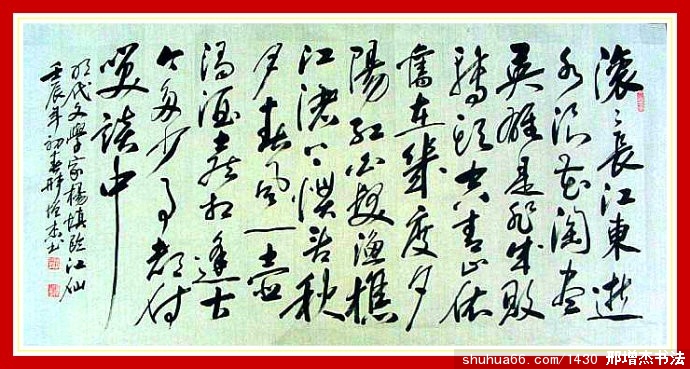 滚〻長江東逝
水浪花淘尽
英雄是非成敗
转頭空青山依
舊在幾度夕
陽红白髮渔樵
江渚上慣看秋
月春风一壶
濁酒喜相逢古
今多少事都付
笑談中
明代文學家楊慎临江仙
壬辰年初春邢增杰书
shuhua66.com/1430 邢增杰书法